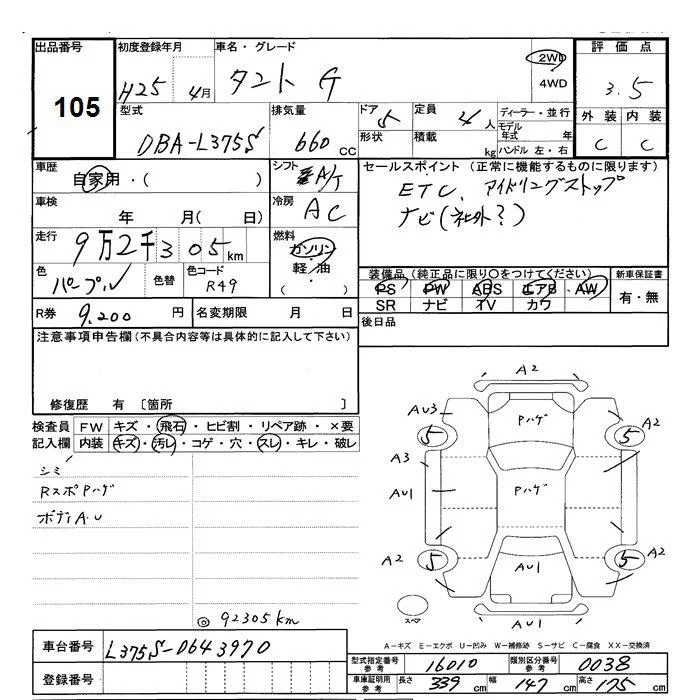 出品番号
105
初度登録年月
H25年 4月
車名・グレード
タント G
2WD
4WD
評価点
3.5
外装 内装
C C
型式
DBA-L375S
排気量
660 CC
ドア 5
形状
定員 4人
積載 kg
ディーラー・並行
モデル年式 年
ハンドル 左・右
車歴
自家用・( )
シフト
A/T
セールスポイント (正常に機能するものに限ります)
ETC、アイドリングストップ
ナビ(社外?)
車検
年 月( 日)
冷房
AC
走行
9万2千305km
燃料
ガソリン
軽・油
( )
色
パープル
色替
色コード
R49
装備品(純正品に限り○をつけてください)
PS PW ABS エアB AW
SR ナビ TV カワ
新車保証書
有・無
R券 9,200 円
名変期限 月 日
後日品
注意事項申告欄(不具合内容等は具体的に記入して下さい)
修復歴 有 〔箇所 〕
検査員記入欄
FW キズ・飛石・ヒビ割・リペア跡・×要
内装 キズ・汚レ・コゲ・穴・スレ・キレ・破レ
シミ
RスポPハゲ
ボディA.U
◎92305km
A2
AU3
Pハゲ
A2
5
5
A3
AU1
Pハゲ
A2
5
AU1
5
A2
スペア
AU1
A-キズ E-エクボ U-凹み W-補修跡 S-サビ C-腐食 XX-交換済
車台番号 L375S-0643970
登録番号
型式指定番号参考 16010
類別区分番号参考 0038
車庫証明用参考 長さ 339cm 幅 147cm 高さ 175cm